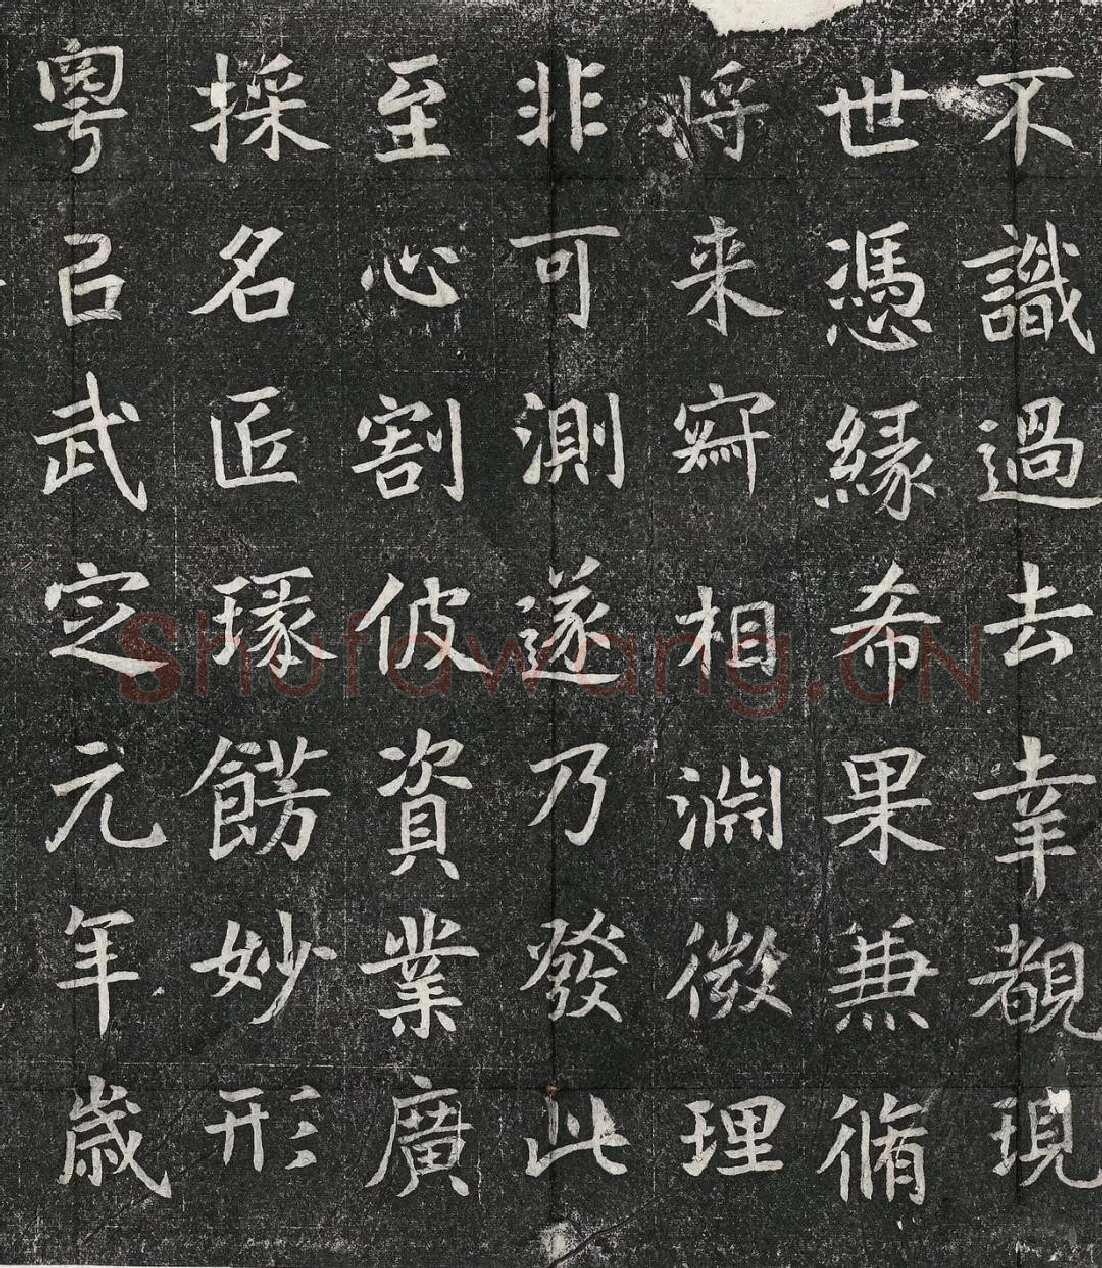 不識過去幸覩現
世憑緣希果兼脩
將来冥相渊微理
非可測遂乃發此
至心割彼資業廣
採名匠瑑餝妙形
粤以武定元年歲
Shufawang.CN